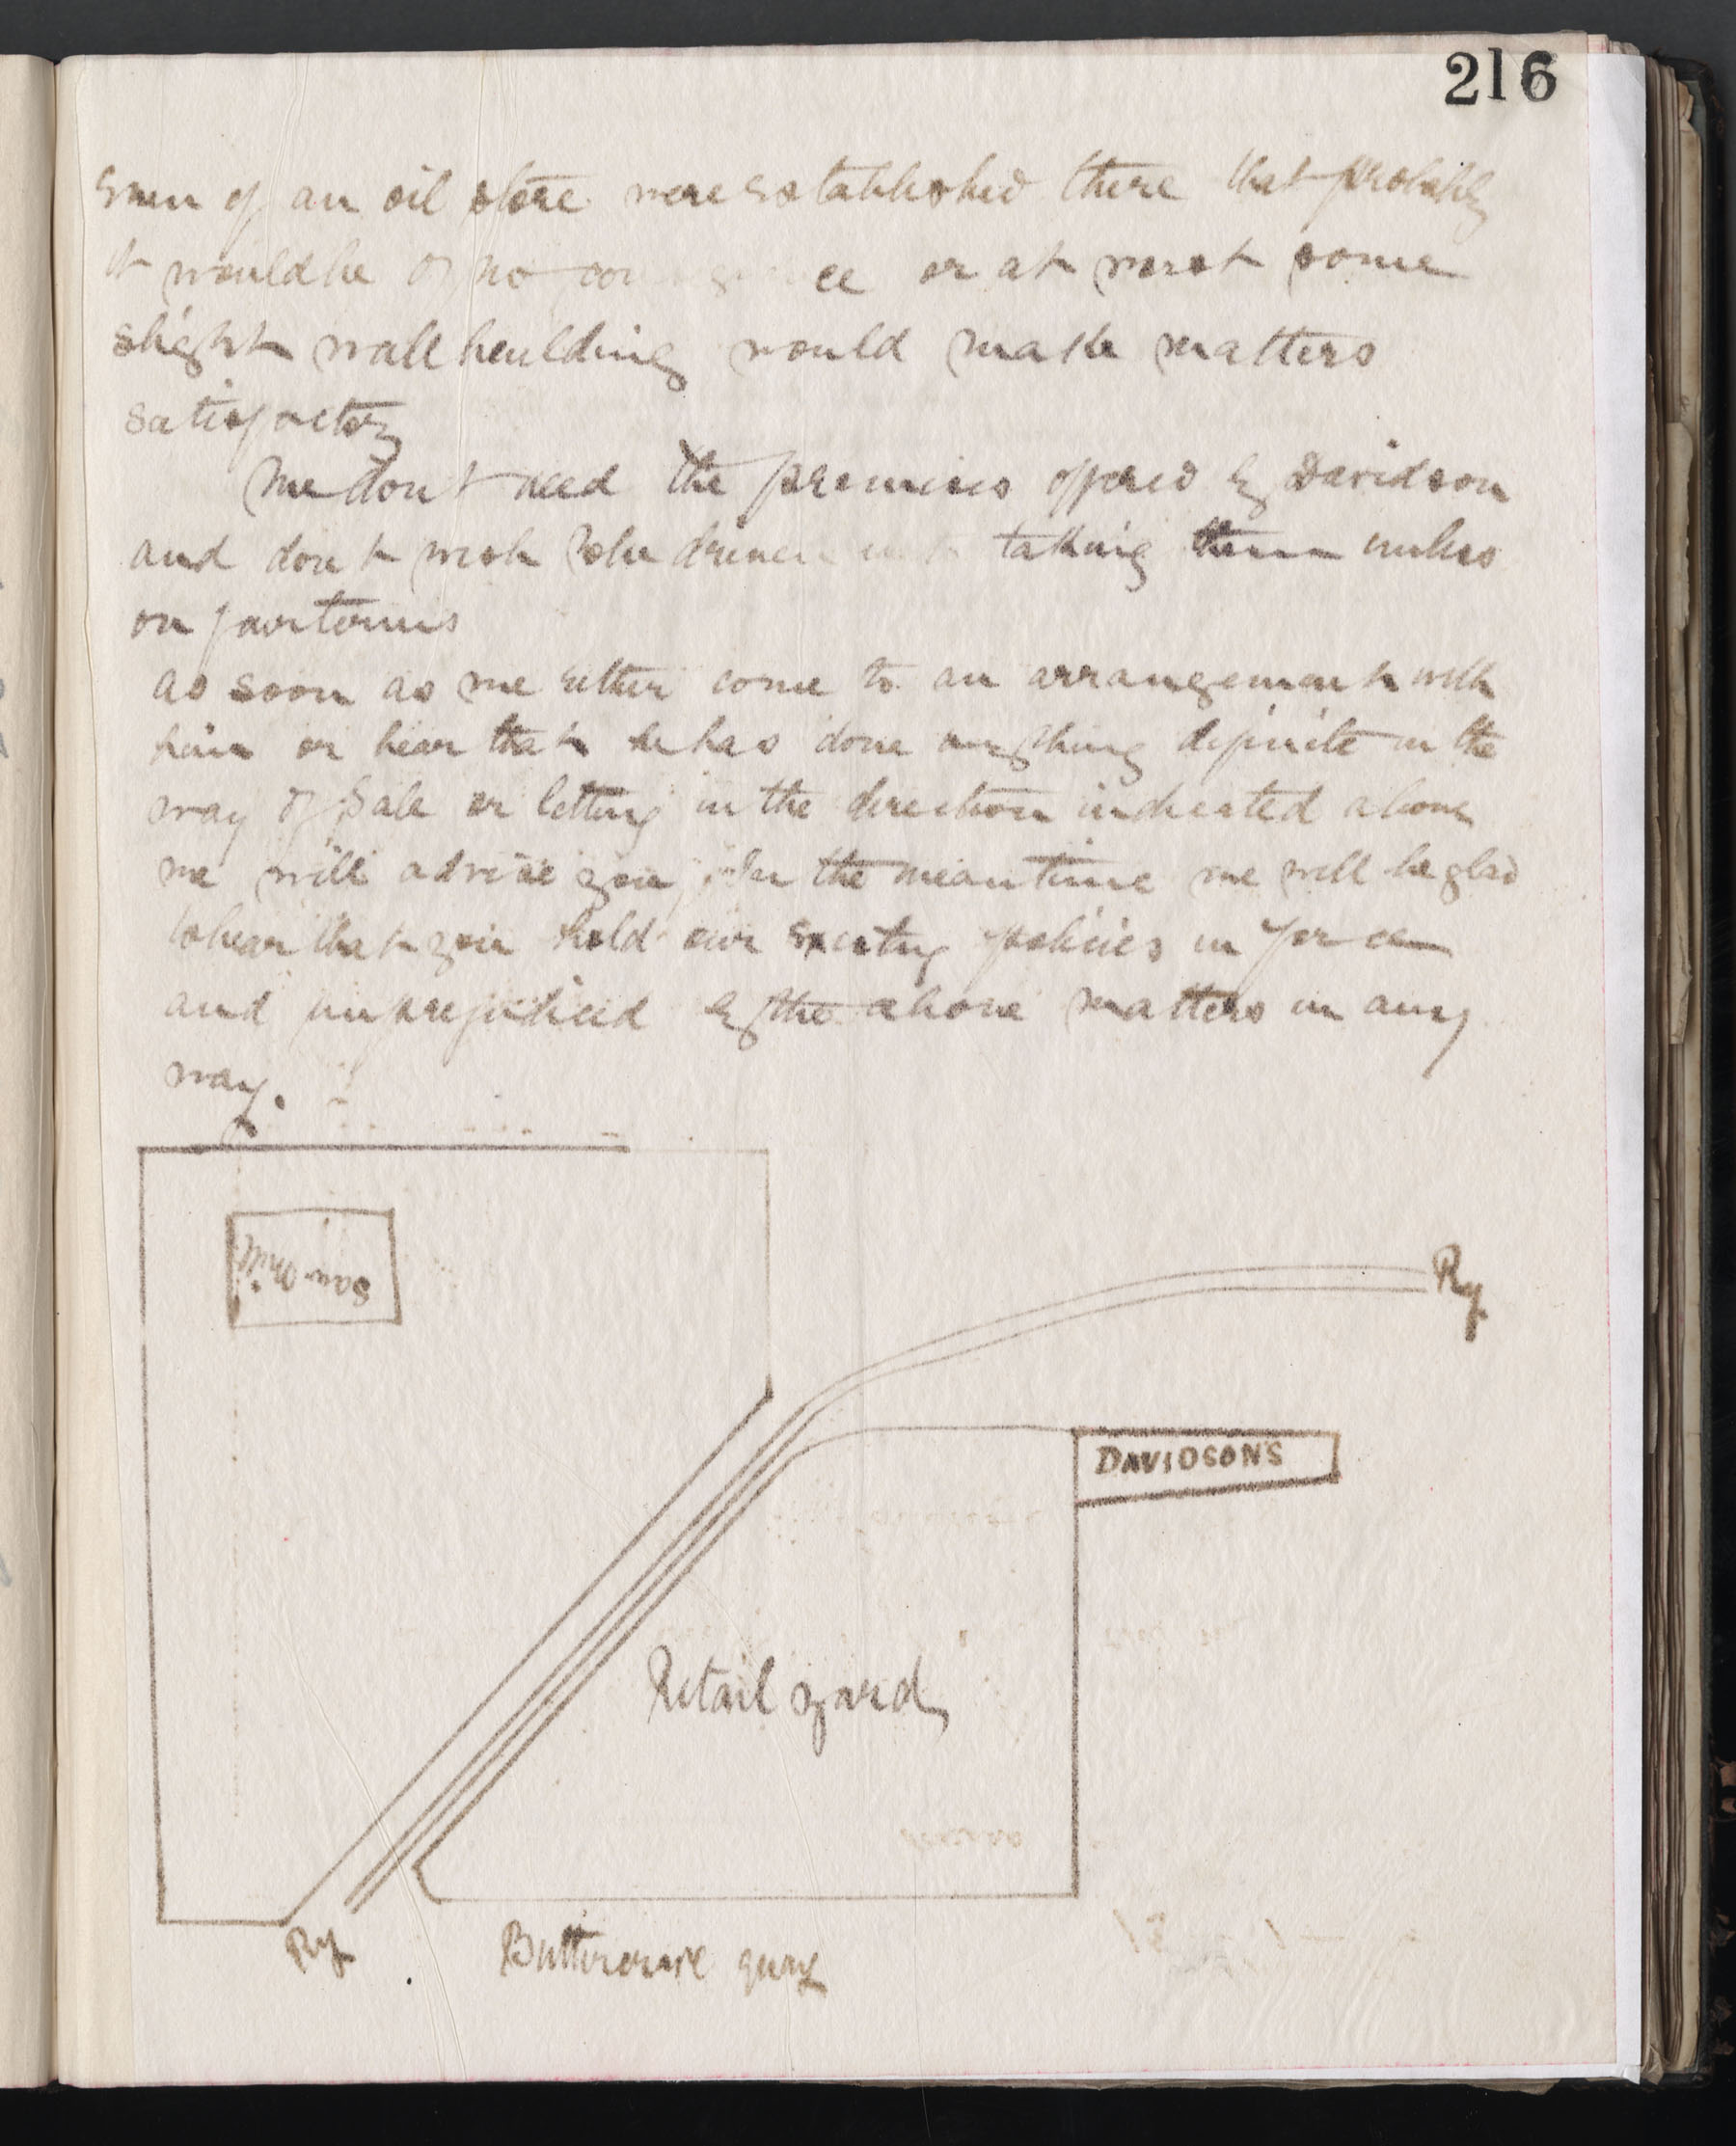 216
even if an oil store were established there that probably
it would be of no consequence or at worst some
slight wall building would make matters
satisfactory
We dont need the premises offered by Davidson
and dont wish to be driven into taking them unless
on fair terms
as soon as we either come to an arrangement with
him or hear that he has done anything definite in the
way of sale or letting in the direction indicated above
we will advise you, in the meantime we will be glad
to hear that you hold our existing policies in force
and unprejudiced by the above matters in any
way.
Saw-Mill
Ry
DAVIDSONS
Retail yard
Ry
Buttercrane quay